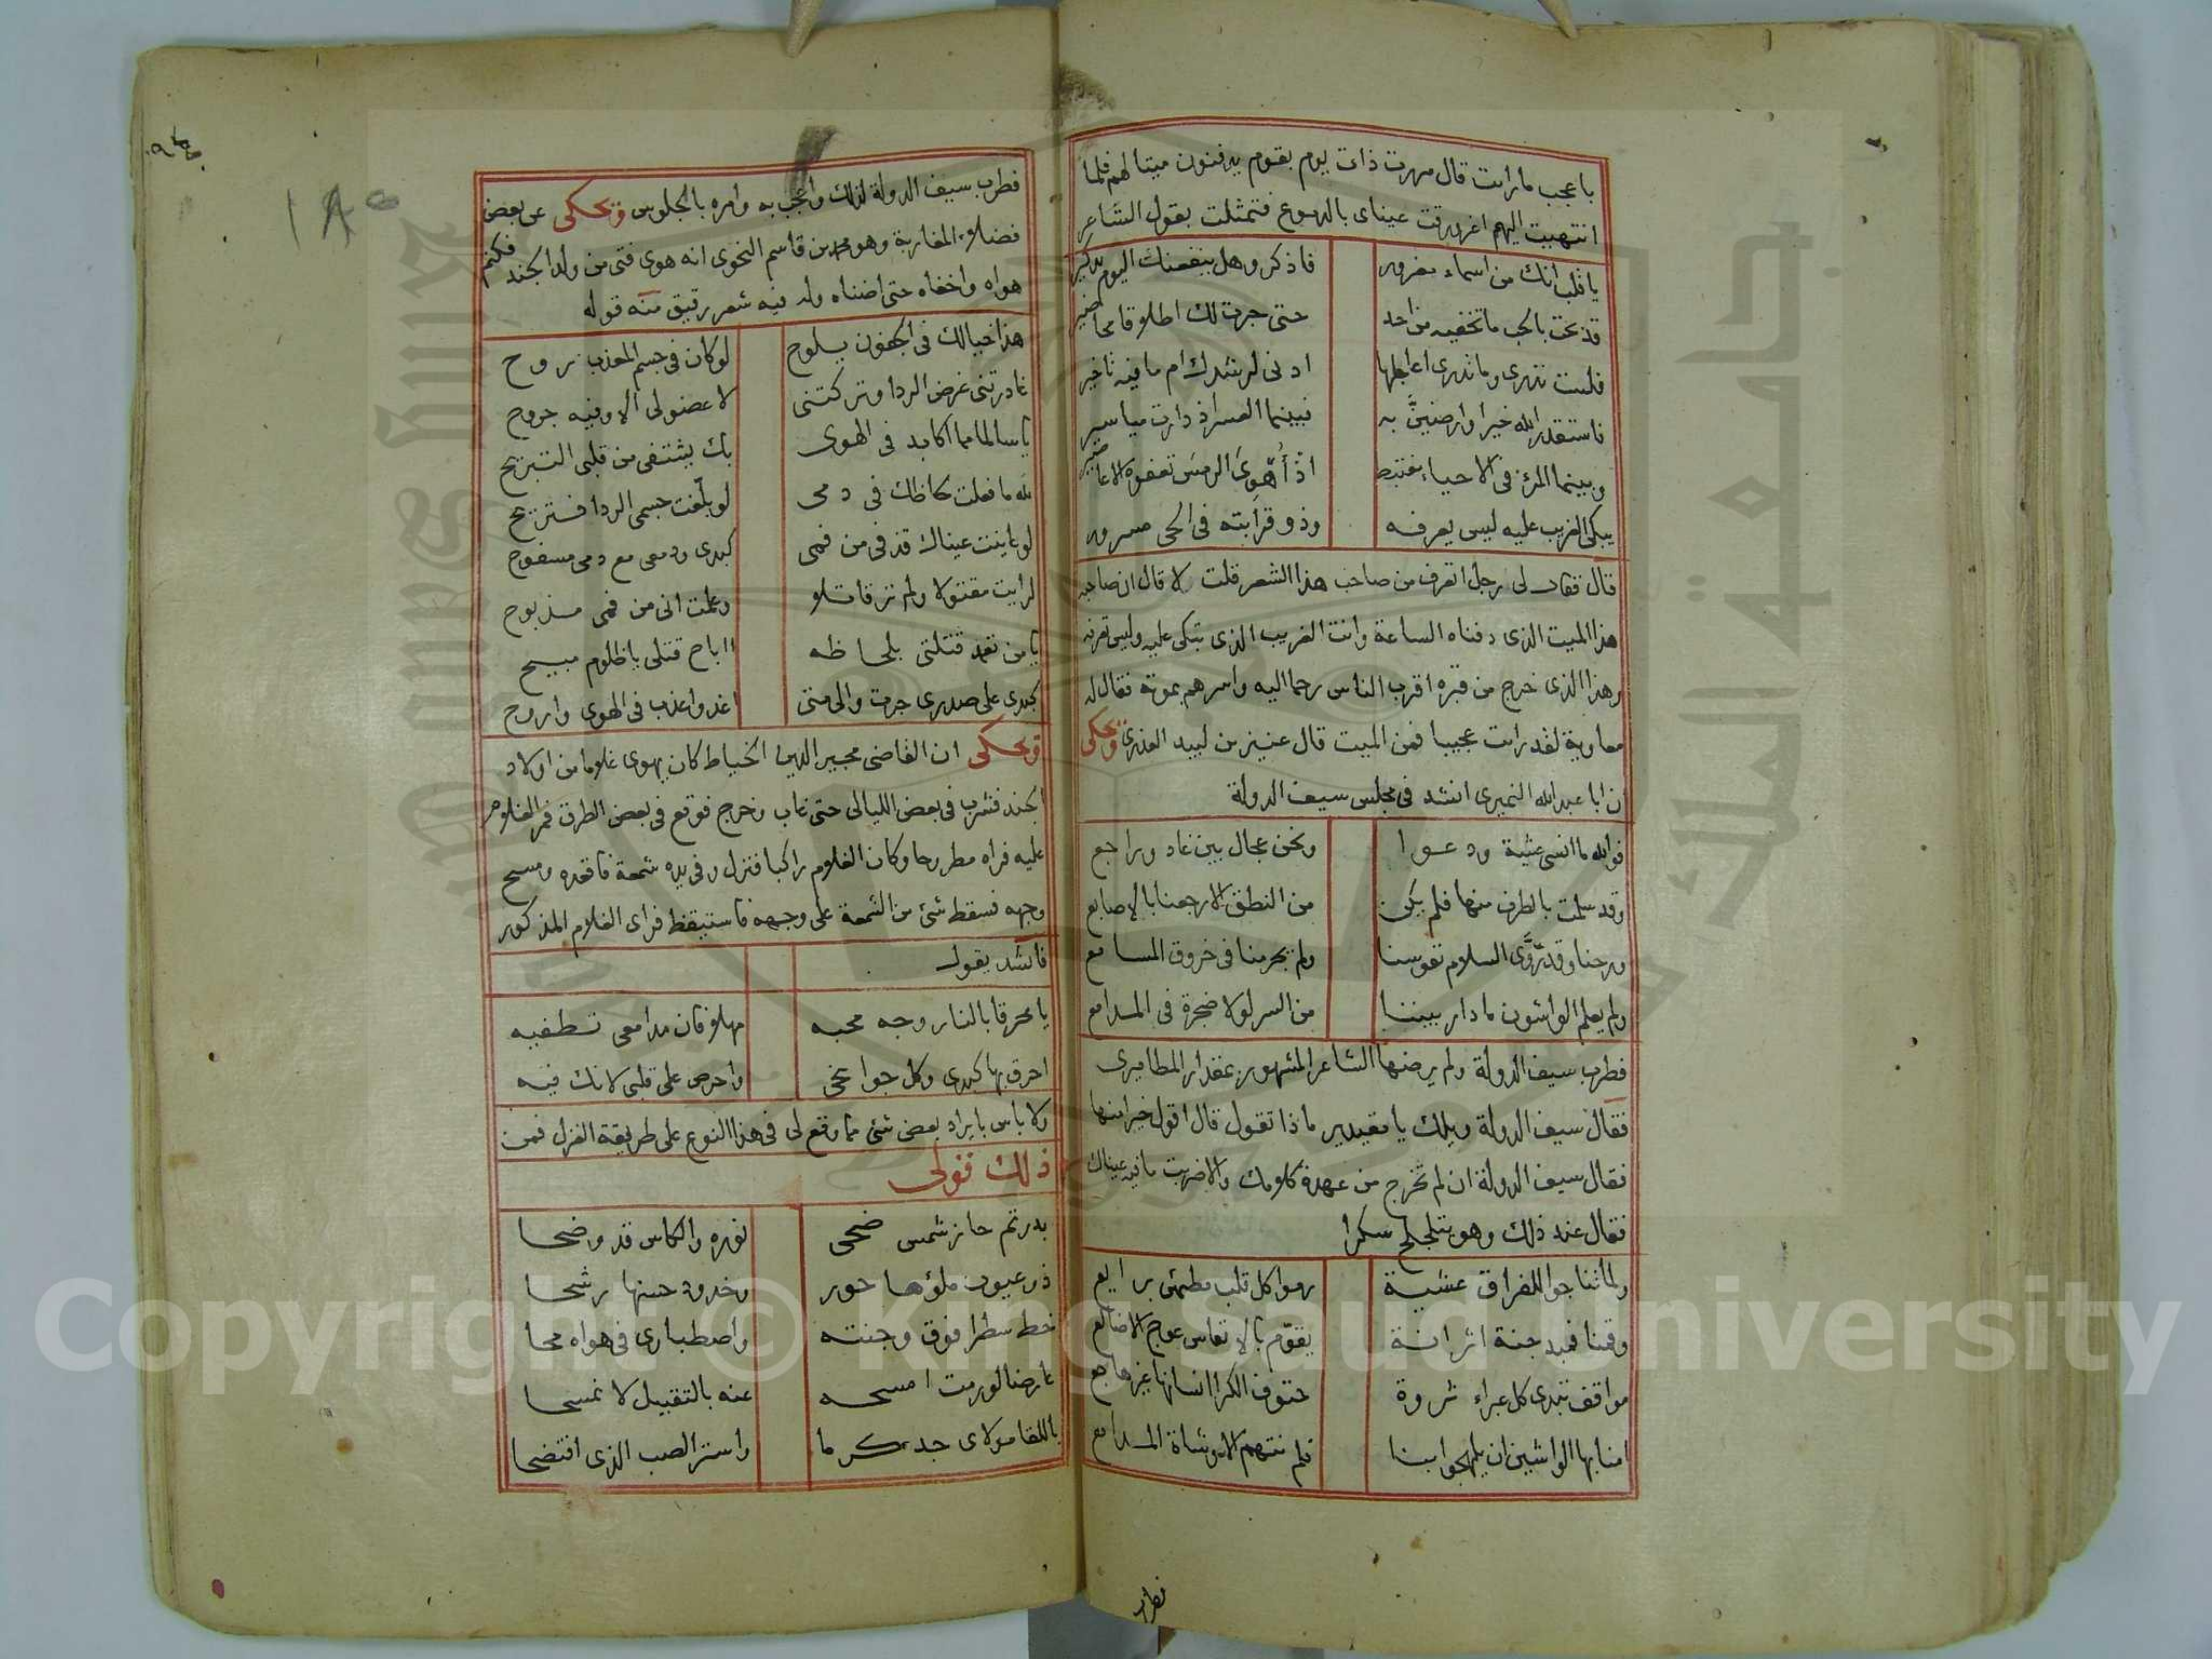 باعجب ما رايت قال مررت ذات يوم بقوم يدفنون ميتا لهم فلما
انتهيت اليهم اغرورقت عيناى بالدموع فتمثلت بقول الشاعر
يا قلب انك من اسماء مغرور فاذكر وهل ينفعنك اليوم تذكير
قد بحت بالحب ما تخفيه من احد حتى جرت لك اطلاقا محاضير
فلست تدرى وما تدرى اعاجلها ادنى لرشدك ام ما فيه تاخير
فاستقدر الله خيرا وارضينَّ به فبينما العسر اذ دارت مياسير
وبينما المرء فى الاحياء مغتبط اذ هوى الرمس تعفوه الاعاصير
يبكى الغريب عليه ليس يعرفه وذو قرابته فى الحى مسرور
قال فقال لى رجل اتعرف من صاحب هذا الشعر قلت لا قال ان صاحبه
هذا الميت الذى دفناه الساعة وانت الغريب الذى تبكى عليه وليس تعرفه
وهذا الذى خرج من قبره اقرب الناس رحما اليه واسرهم بموته فقال له
معاوية لقد رايت عجيبا فمن الميت قال عنيز بن لبيد العذرى ويحكى
ان ابا عبد الله النميرى انشد فى مجلس سيف الدولة
فوالله ما انسى عشية ودعوا ونحن عجال بين غاد وراجع
وقد سلمت بالطرف منها فلم يكن من النطق الا رجعنا بالاصابع
ورحنا وقد روَّى السلام نفوسنا ولم يجر منا فى خروق المسامع
ولم يعلم الواشون ما دار بيننا من السر لولا ضجرة فى المدامع
فطرب سيف الدولة ولم يرضها الشاعر المشهور بمقدار المطاميرى
فقال سيف الدولة ويلك يا مقيدير ماذا تقول قال اقول خيرا منها
فقال سيف الدولة ان لم تخرج من عهدة كلامك والا ضربت ما فيه عيناك
فقال عند ذلك وهو يتلجلج سكرا
ولما تناجوا للفراق عشية رموا كل قلب مطمئن برايع
وقفنا فمبد حنة اثر انة يقوم بالانفاس عوج الاضالع
مواقف تبدى كل عبراء ثروة حتوف الكرا انسانها غير هاجع
امنا بها الواشين ان يلهجوا بنا فلم نتهم الا وشاة المدامع
فطرب
١٨٥
فطرب سيف الدولة لذلك واعجب به وامره بالجلوس ويحكى عن بعض
فضلاء المغاربة وهو محمد بن قاسم النحوى انه هوى فتى من ولد الجند فكتم
هواه واخفاه حتى اضناه وله فيه شعر رقيق منه قوله
هذا خيالك فى الجفون يلوح لو كان فى جسم المعذب روح
غادرتنى غرض الردا وتركتنى لا عضو لى الا وفيه جروح
يا سالما مما اكابد فى الهوى بك يشتفى من قلبى التبريح
لله ما فعلت لحاظك فى دمى لو بلّغت جسمى الردا فتريح
لو عاينت عيناك قذفى من فمى كبدى ودمعى مع دمى مسفوح
لرايت مقتولا ولم تر قاتلا وعلمت انى من فمى مذبوح
يا من تعمد قتلتى بلحاظه ااباح قتلى يا ظلوم مبيح
كبدى على صدرى جرت والى متى اغدوا عذب فى الهوى واروح
ويحكى ان القاضى مجير الدين الخياط كان يهوى غلاما من اولاد
الجند فشرب فى بعض الليالى حتى غاب وخرج فوقع فى بعض الطرق فمر الغلام
عليه فراه مطروحا وكان الغلام راكبا فنزل وفى يده شمعة فاقعده ومسح
وجهه فسقط شئ من الشمعة على وجهه فاستيقظ فراى الغلام المذكور
فانشد يقول
يا محرقا بالنار وجه محبه مهلا فان مدامعى تطفيه
احرق بها كبدى وكل جوانحى واحرص على قلبى لانك فيه
ولا باس بايراد بعض شئ مما وقع لى فى هذا النوع على طريقة الغزل فمن
ذلك قولى
بدر تم حاز شمس ضحى ثغره والكاس قد وضحا
ذو عيون ملؤها حور وخدود حسنها رشحا
خط سطرا فوق وجنته واصطبارى فى هواه محا
عارضا لو رمت امسحه عنه بالتقبيل لا نمسحا
باللقا مولاى جد كرما واستر الصب الذى افتضحا
Copyright © King Saud University